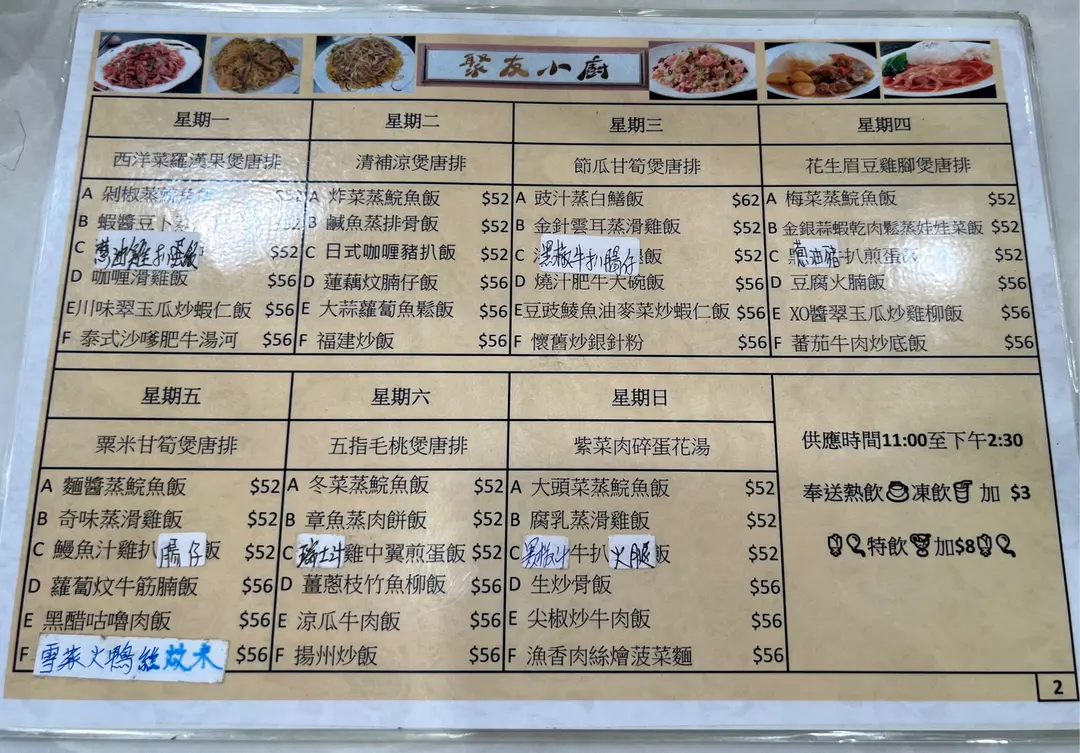 聚友小廚
星期一
西洋菜羅漢果煲唐排
A 剁椒蒸鯇魚飯 $52
B 蝦醬豆卜蒸 $52
C 蔥油雞扒蛋飯 $52
D 咖喱滑雞飯 $56
E 川味翠玉瓜炒蝦仁飯 $56
F 泰式沙嗲肥牛湯河 $56
星期二
清補涼煲唐排
A 炸菜蒸鯇魚飯 $52
B 鹹魚蒸排骨飯 $52
C 日式咖喱豬扒飯 $52
D 蓮藕炆腩仔飯 $56
E 大蒜蘿蔔魚鬆飯 $56
F 福建炒飯 $56
星期三
節瓜甘筍煲唐排
A 豉汁蒸白鱔飯 $62
B 金針雲耳蒸滑雞飯 $52
C 黑椒牛扒腸仔飯 $52
D 燒汁肥牛大碗飯 $56
E 豆豉鯪魚油麥菜炒蝦仁飯 $56
F 懷舊炒銀針粉 $56
星期四
花生眉豆雞腳煲唐排
A 梅菜蒸鯇魚飯 $52
B 金銀蒜蝦乾肉鬆蒸娃娃菜飯 $52
C 蔥油豬扒煎蛋 $52
D 豆腐火腩飯 $56
E XO醬翠玉瓜炒雞柳飯 $56
F 蕃茄牛肉炒底飯 $56
星期五
粟米甘筍煲唐排
A 麵醬蒸鯇魚飯 $52
B 奇味蒸滑雞飯 $52
C 鰻魚汁雞扒腸仔飯 $52
D 蘿蔔炆牛筋腩飯 $56
E 黑醋咕嚕肉飯 $56
F 雪菜火鴨絲炆米 $56
星期六
五指毛桃煲唐排
A 冬菜蒸鯇魚飯 $52
B 章魚蒸肉餅飯 $52
C 瑞士汁雞中翼煎蛋飯 $52
D 薑蔥枝竹魚柳飯 $56
E 涼瓜牛肉飯 $56
F 揚州炒飯 $56
星期日
紫菜肉碎蛋花湯
A 大頭菜蒸鯇魚飯 $52
B 腐乳蒸滑雞飯 $52
C 黑椒汁牛扒火腿飯 $52
D 生炒骨飯 $56
E 尖椒炒牛肉飯 $56
F 漁香肉絲燴菠菜麵 $56
供應時間11:00至下午2:30
奉送熱飲凍飲 加 $3
特飲加$8
2